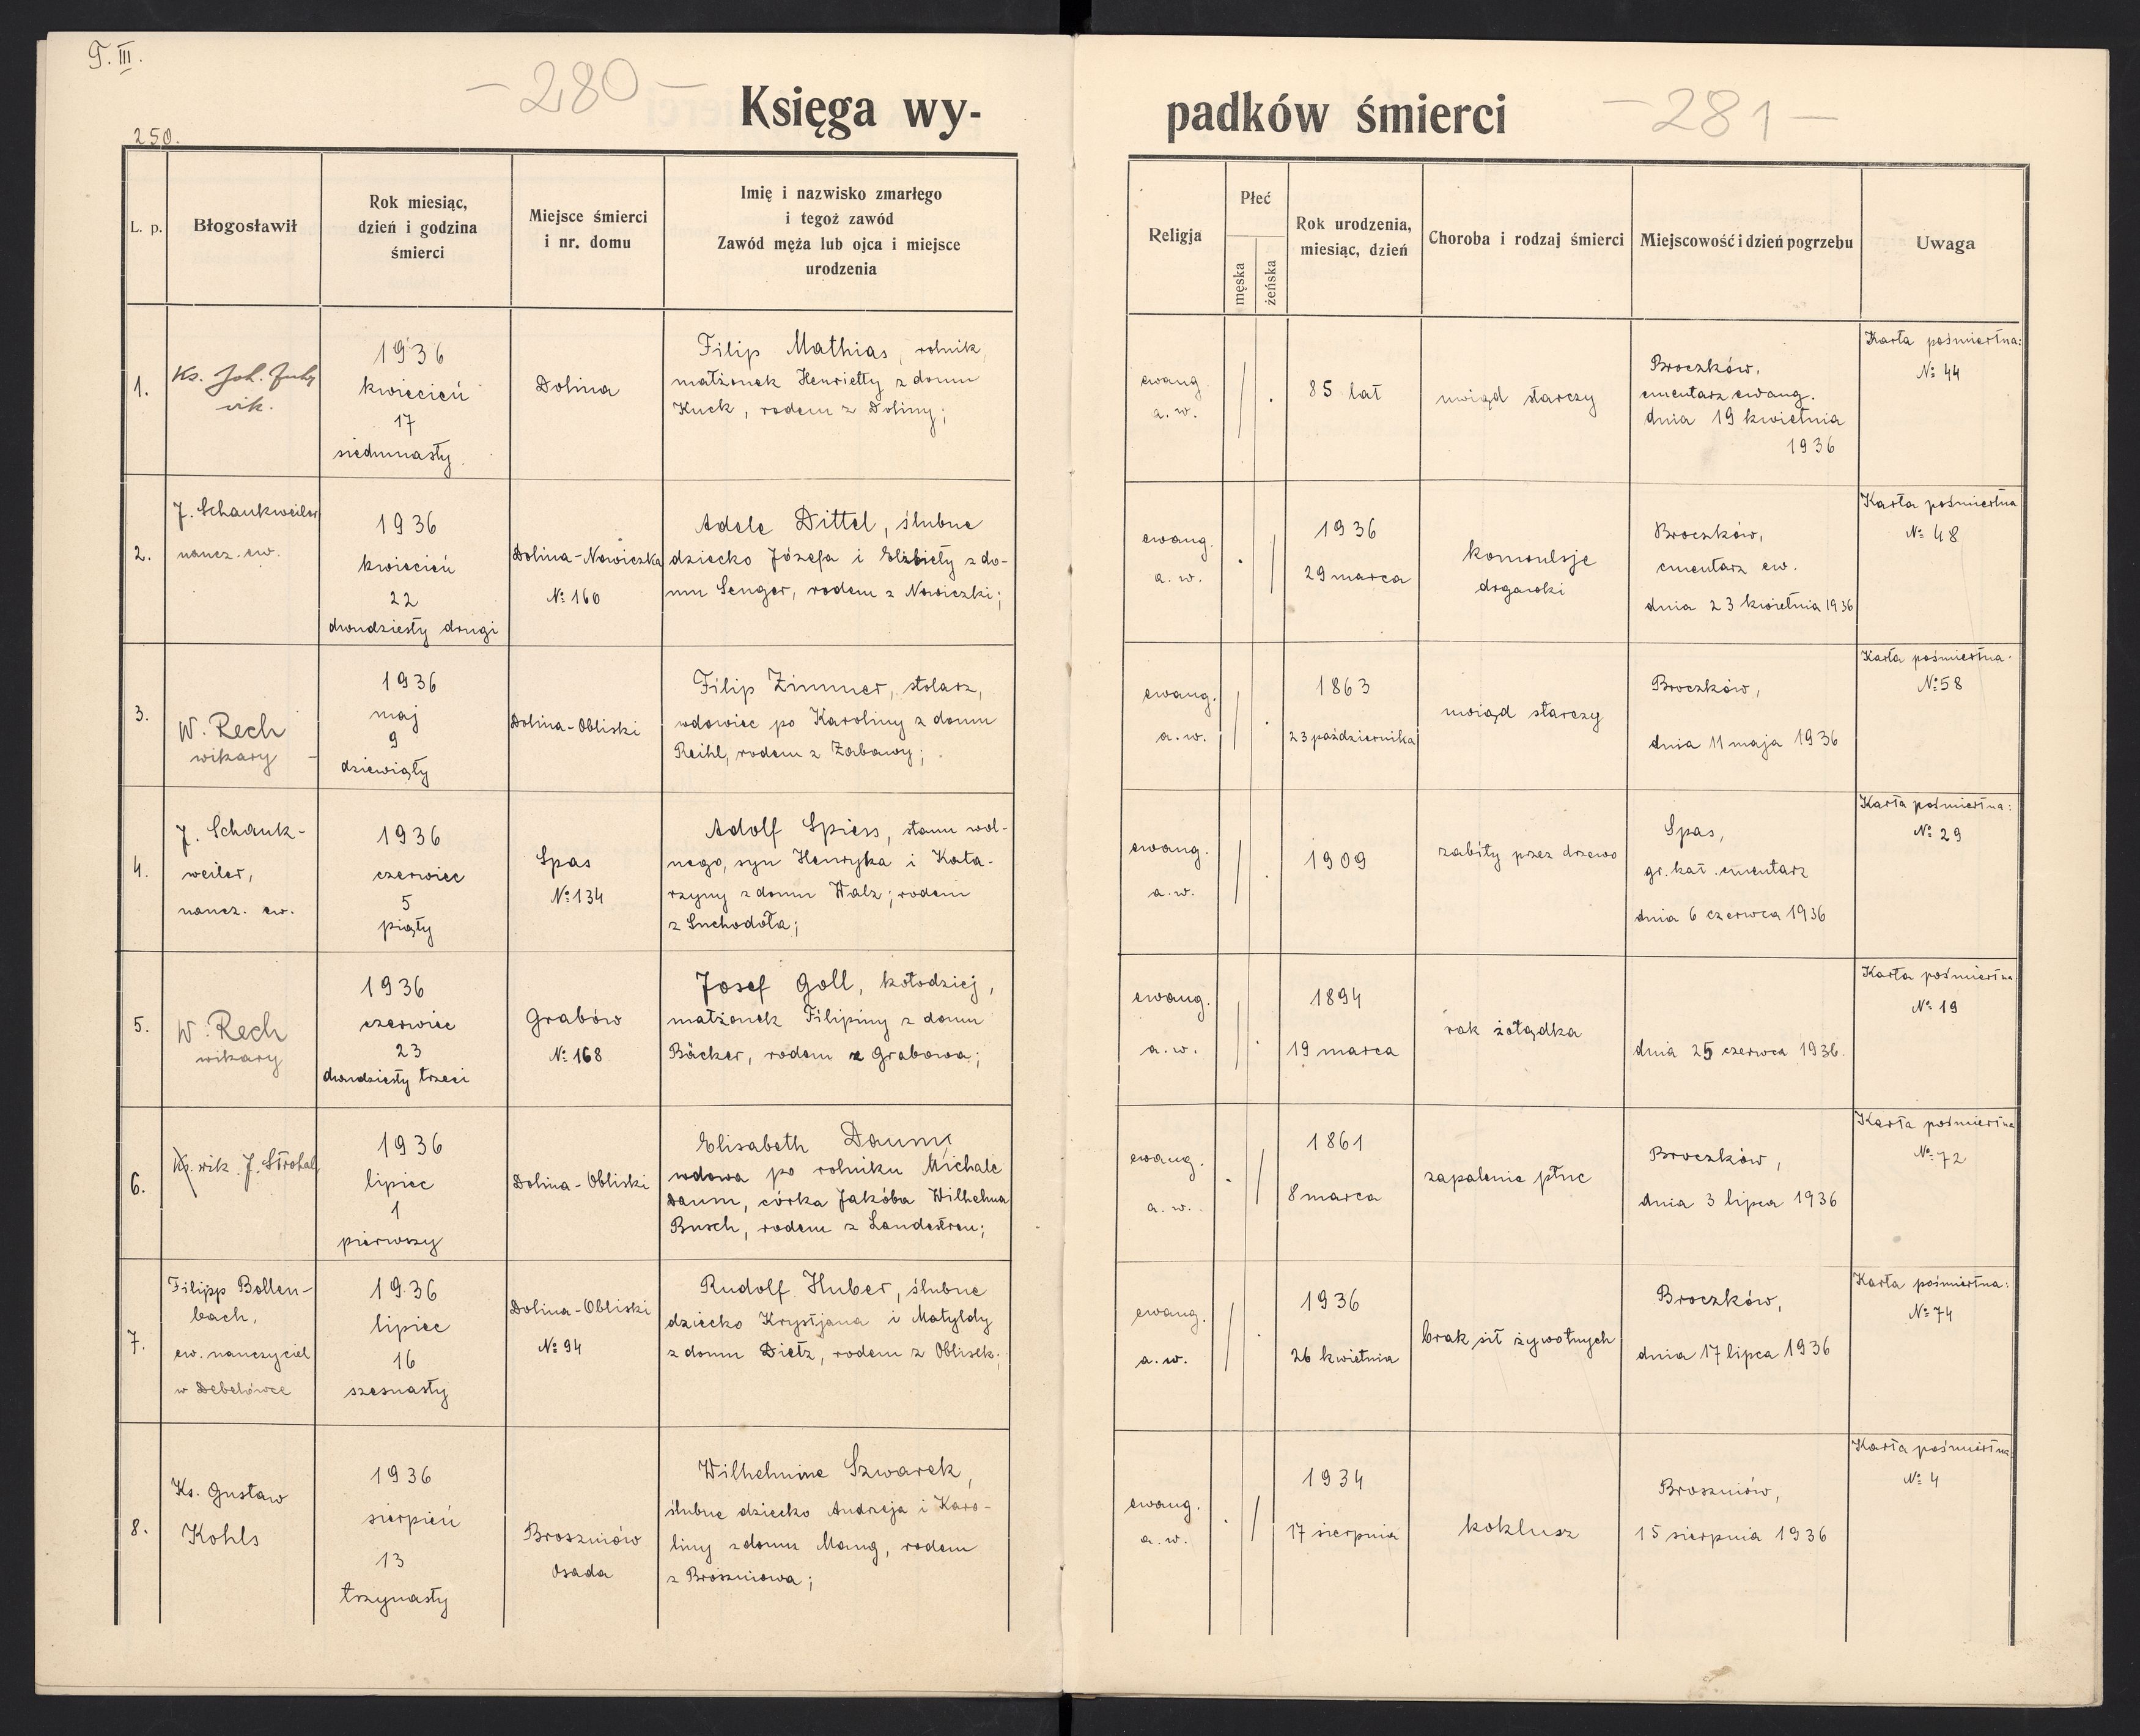 T. III.
- 280 -
Księga wy-
padków śmierci
- 281 -
250.
L. p.
Błogosławił
Rok miesiąc,
dzień i godzina
śmierci
Miejsce śmierci
i nr. domu
Imię i nazwisko zmarłego
i tegoż zawód
Zawód męża lub ojca i miejsce
urodzenia
Religja
Płeć
męska
żeńska
Rok urodzenia,
miesiąc, dzień
Choroba i rodzaj śmierci
Miejscowość i dzień pogrzebu
Uwaga
1.
Ks. Joh.
wik.
1936
kwiecień
17
siedmnasty.
Dolina
Filip Mathias, rolnik,
małżonek Henrietty z domu
Kuck, rodem z Doliny;
ewang.
a. w.
85 lat
uwiąd starczy
Broczków,
cmentarz ewang.
dnia 19 kwietnia
1936
Karta pośmiertna:
№ 44
2.
J. Schankweiler
naucz. ew.
1936
kwiecień
22
dwudziesty drugi
Dolina-Nowiczka
№ 160
Adele Dittel, ślubne
dziecko Józefa i Elżbiety z do-
mu Senger, rodem z Nowiczki;
ewang.
a. w.
1936
29 marca
konwulsje
drgawki
Broczków,
cmentarz ew.
dnia 23 kwietnia 1936
Karta pośmiertna
№ 48
3.
W. Rech
wikary
1936
maj
9
dziewiąty
Dolina-Obliski
Filip Zimmer, stolarz,
wdowiec po Karoliny z domu
Reihl, rodem z Zabawy;
ewang.
a. w.
1863
23 października
uwiąd starczy
Broczków,
dnia 11 maja 1936
Karta pośmiertna.
№ 58
4.
J. Schank-
weiler,
naucz. ew.
1936
czerwiec
5
piąty
Spas
№ 134
Adolf Spiess, stanu wol-
nego, syn Henryka i Kata-
rzyny z domu Walz; rodem
z Suchodoła;
ewang.
a. w.
1909
zabity przez drzewo
Spas,
gr. kat. cmentarz
dnia 6 czerwca 1936
Karta pośmiertna:
№ 29
5.
W. Rech
wikary
1936
czerwiec
23
dwudziesty trzeci
Grabów
№ 168
Josef Goll, kołodziej,
małżonek Filipiny z domu
Bäcker, rodem z Grabowa;
ewang.
a. w.
1894
19 marca
rak żołądka
dnia 25 czerwca 1936.
Karta pośmiertna
№ 19
6.
Ks. wik. J. Strohal
1936
lipiec
1
pierwszy
Dolina-Obliski
Elisabeth Daum,
wdowa po rolniku Michale
Daum, córka Jakóba Wilhelma
Busch, rodem z Landestreu;
ewang.
a. w.
1861
8 marca
zapalenie płuc
Broczków,
dnia 3 lipca 1936
Karta pośmiertna
№ 72
7.
Filipp Bollen-
bach,
ew. nauczyciel
w Debelówce
1936
lipiec
16
szesnasty
Dolina-Obliski
№ 94
Rudolf Huber, ślubne
dziecko Krystjana i Matyldy
z domu Dietz, rodem z Oblisek.
ewang.
a. w.
1936
26 kwietnia
brak sił żywotnych
Broczków,
dnia 17 lipca 1936
Karta pośmiertna:
№ 74
8.
Ks. Gustaw
Kohls
1936
sierpień
13
trzynasty
Broszniów
Osada
Wilhelmine Szwarek,
ślubne dziecko Andrzeja i Karo-
liny z domu Mang, rodem
z Broszniowa;
ewang.
a. w.
1934
17 sierpnia
koklusz
Broszniów,
15 sierpnia 1936
Karta pośmiertna
№ 4